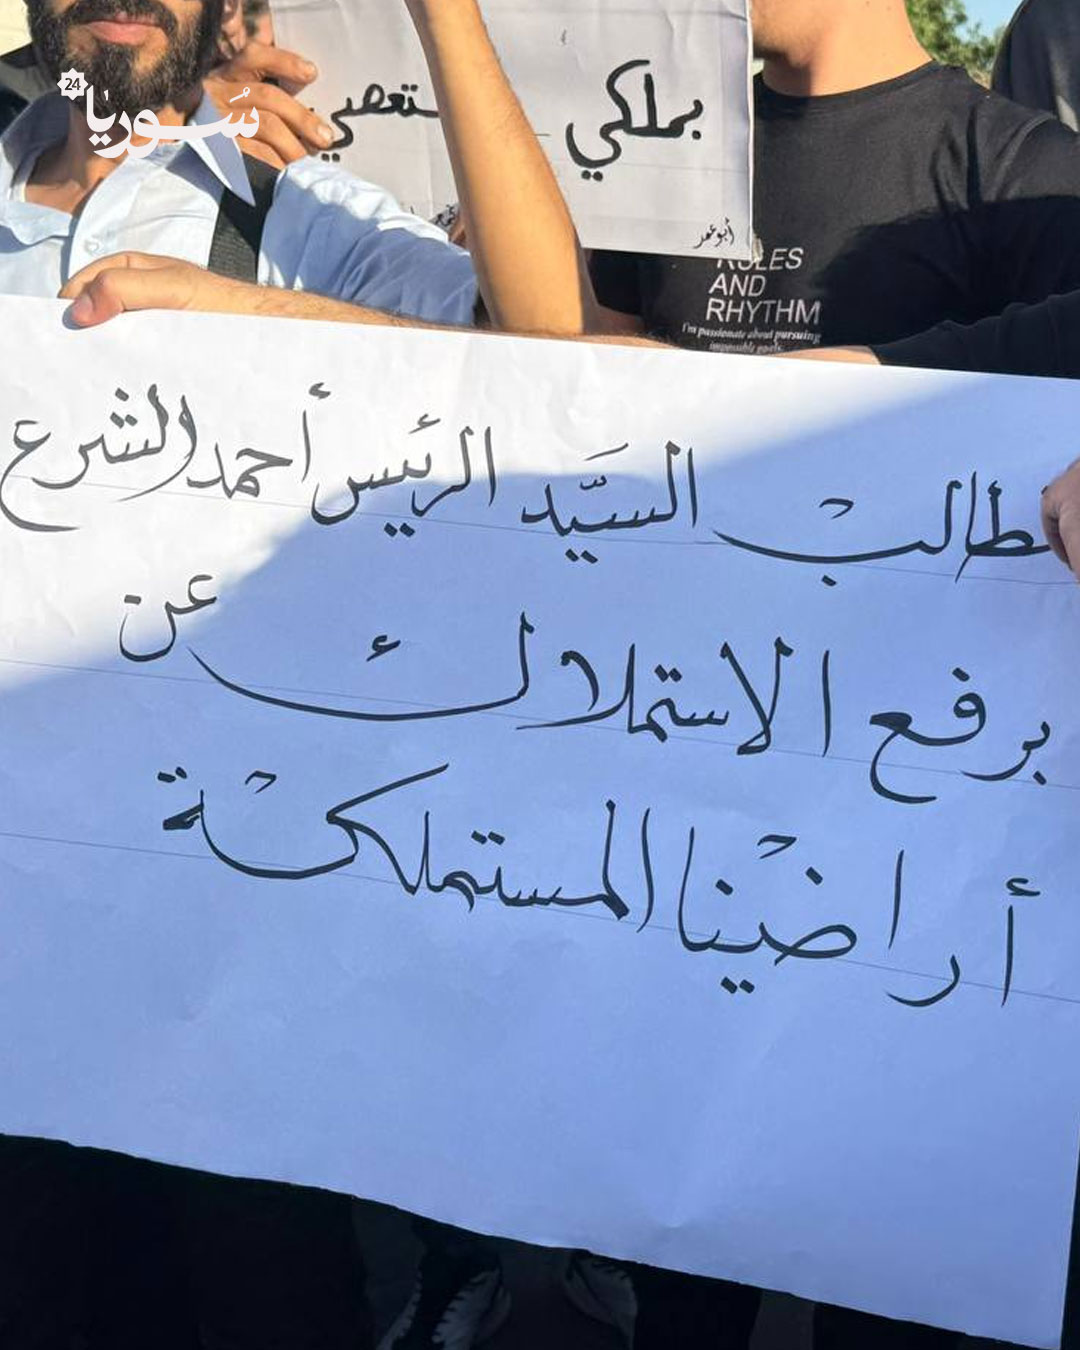 سوريا
24
بملكي
أبو عمر
RULES
AND
RHYTHM
I'm passionate about pursuing
impossible goals.
نطالب السَّيّد الرئيس أحمد الشرع
برفع الاستملاك عن
أراضينا المستملكة